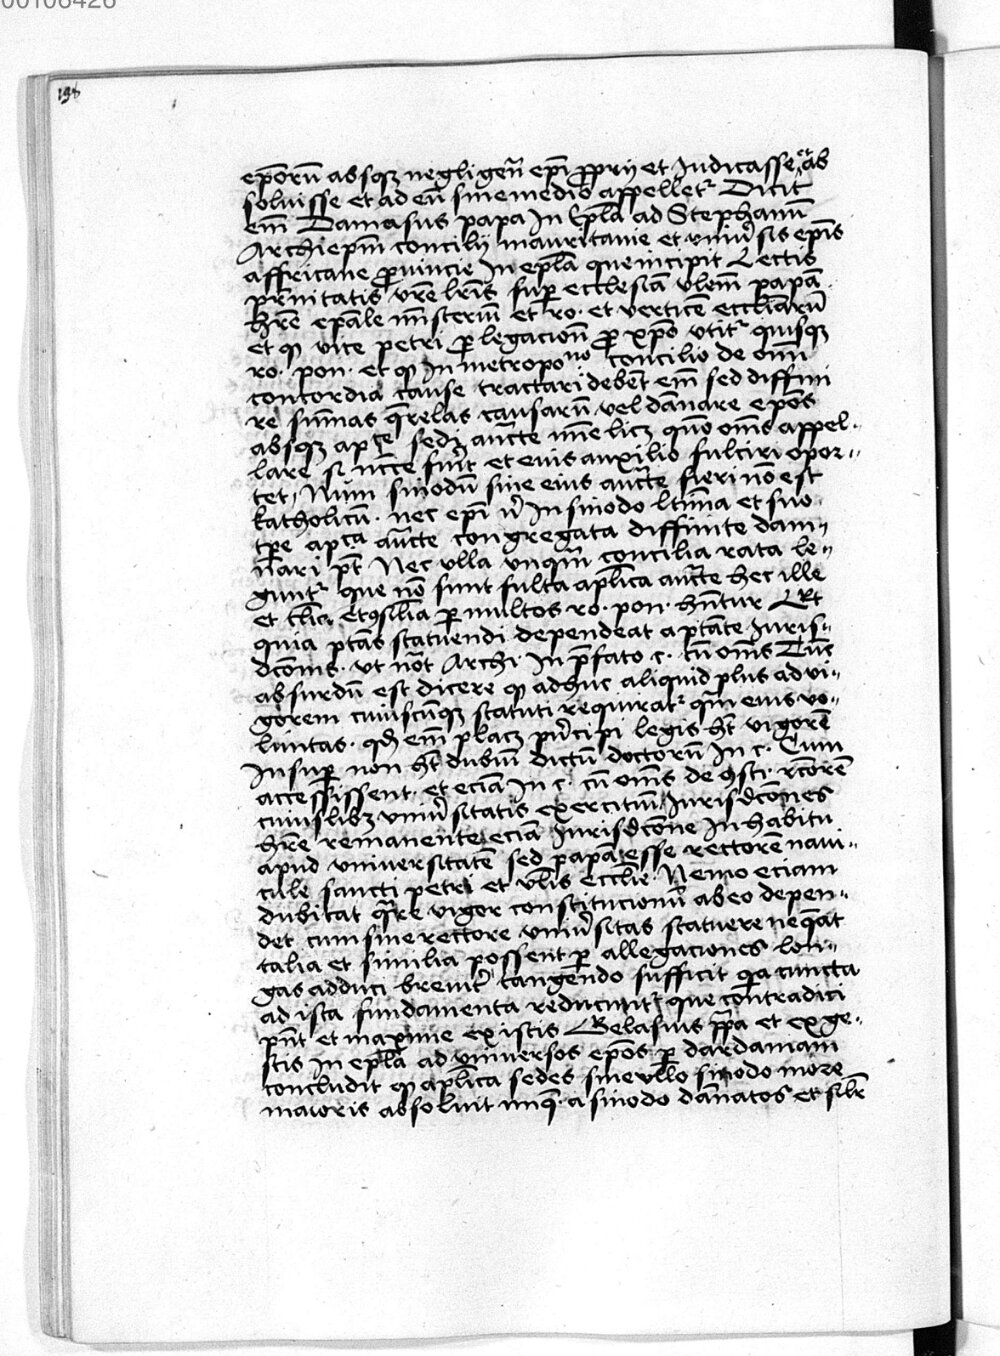 00106426
198
epōrū absqꝫ negligen̄ epī ꝓprij et Judicasse et ab
soluisse et ad eū sine medio appellet᷑ Dicit
em̄ Damasus papa In Ep̄la ad Stephanū
Archiepm̄ concilij mauritanie et vniu̓sis epīs
affricane ꝓuincie In ep̄la que incipit Lectis
fr̄nitatis vr̄e lr̄is suꝑ ecclesiam vlem̄ papā
hr̄e ep̄ale mīsteriū et ro. et verticē eccl̄iarū
et qꝫ vice petri ꝓ legacion̄ ꝓ xp̄o vtit᷑ quisqꝫ
ro. pon. et qꝫ In metropo^no concilio de om̄i
concordia cause tractari debēt em̄ sed diffini
re sūmas q̄relas causarū vel dānare epōs
absqꝫ ap^ce sedꝫ auc̄te mīe licꝫ quō om̄s appel-
lare si nc̄ce fuīt et euis auxilio fulciri opor-
tet, Num sinodū sine eius auc̄te fieri nō est
katholicū. nec epī in sinodo ltīma et suo
tp̄re ap^ca auc̄te congregata diffinite dam-
nari pn̄t Nec vlla vnqm̄ concilia rata le-
gunt᷑ que nō sunt fulta ap̄lica auc̄te hec ille
et ꝯsilia ꝑ multos ro. pon. hn̄tur Et
quia ptās statuendi dependeat a ptāte Juris-
dcōnis. vt not̄ Archi In p̄fato c. cū om̄s Tūc
absurdū est dicere qꝫ adhuc aliquid plus ad vi-
gorem cuiuscūqꝫ statuti requirat᷑ qm̄ eius vo-
luntas. qd̄ em̄ placꝫ pn̓cipi legis ht̄ vigorē
Insuꝑ non ht̄ dubiū dictū doctorū In c. Cum
accessissent. et eciā In c. cū om̄s de ꝯsti. rc̄orē
cuiuslibꝫ vniu̓sitatis exercitiū Jurisdcōnes
hr̄e remanente eciā Jurisdcōne In habitu
apud vniuersitatē sed papā esse rectorē naui-
cule sancti petri et vl̄is eccl̄ie. Nemo eciam
dubitat quar̄e vigor constitucionū ab eo depen-
det cum sine rectore vniu̓sitas statuere neq̄at
talia et similia possent ꝑ allegaciones lon-
gas adduci breuit̓ tangendo sufficit qꝛ cuncta
ad ista fundamenta reducunt᷑ que contradici
pn̄t et maxime ex istis Gelasius pp̄a et ex ge-
stis In ep̄la ad vniuersos epōs ꝑ dardaniam
concludit qꝫ ap̄lica sedes sine vllo sinodo more
maioris absoluit a sinodo dānatos et silr̄